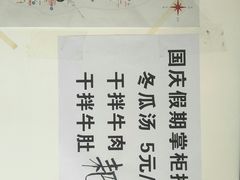 国庆假期掌柜
冬瓜汤 5元/
干拌牛肉
干拌牛肚